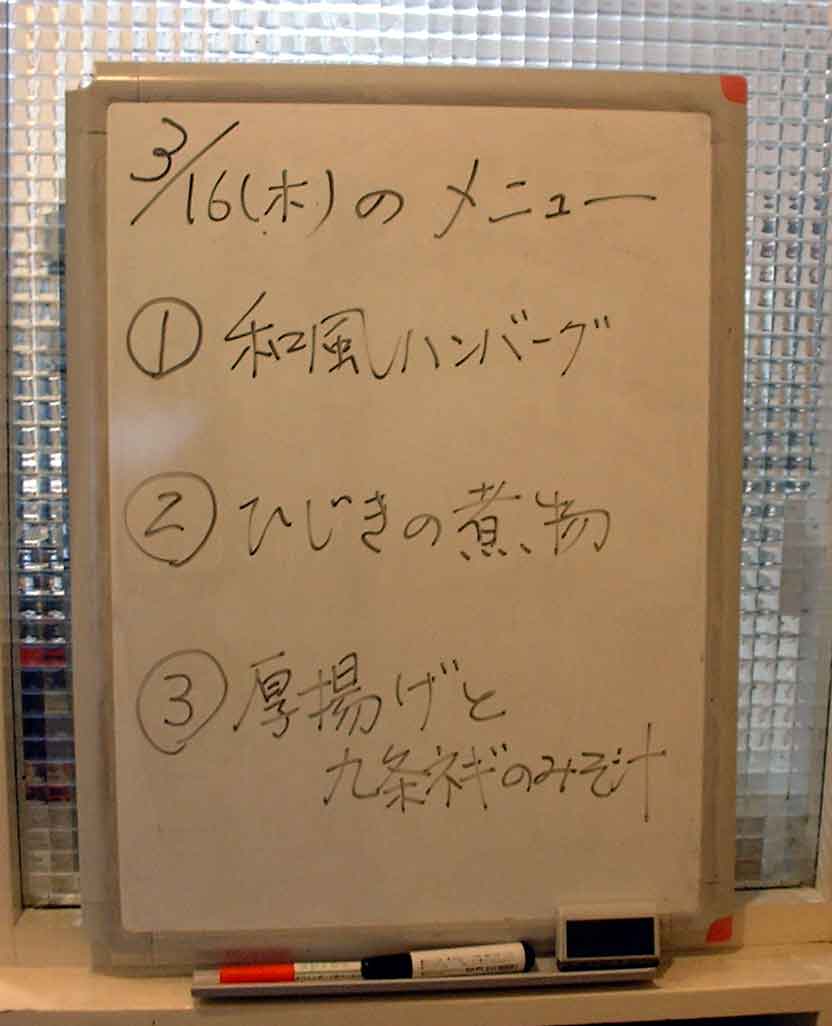 3/16(木)のメニュー
①和風ハンバーグ
②ひじきの煮物
③厚揚げと
九条ネギのみそ汁